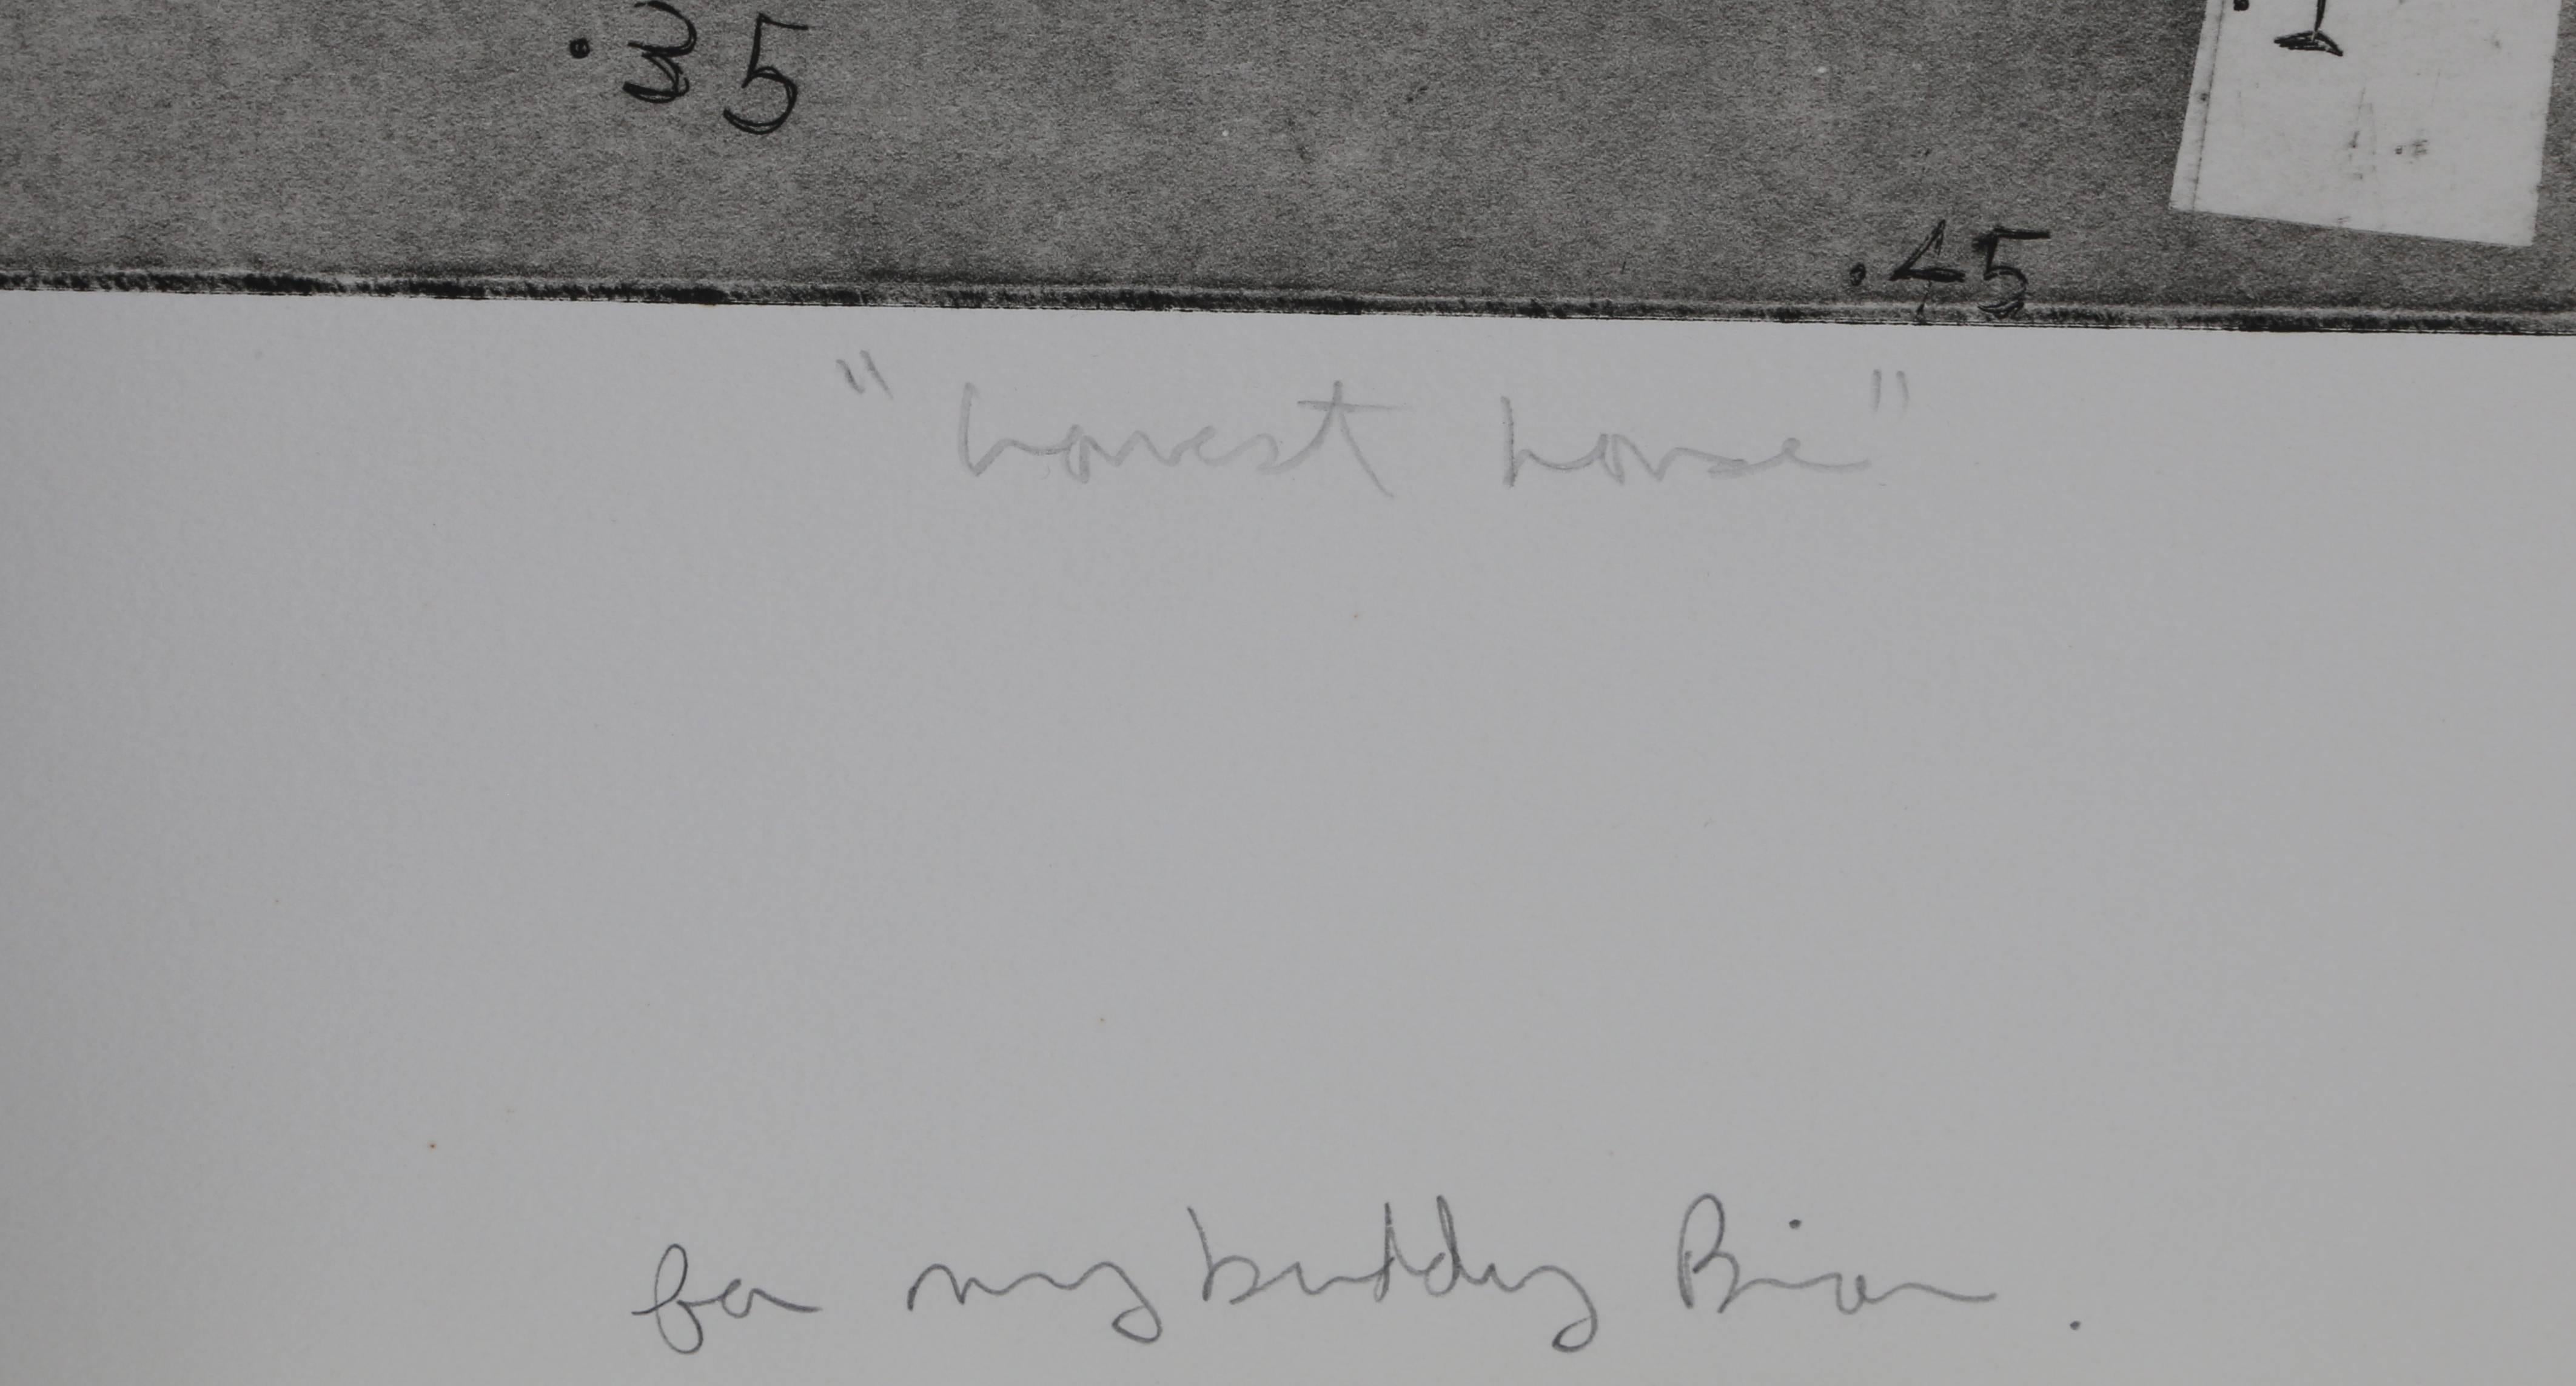 .35
.45
"honest horse"
for my buddy Brian.